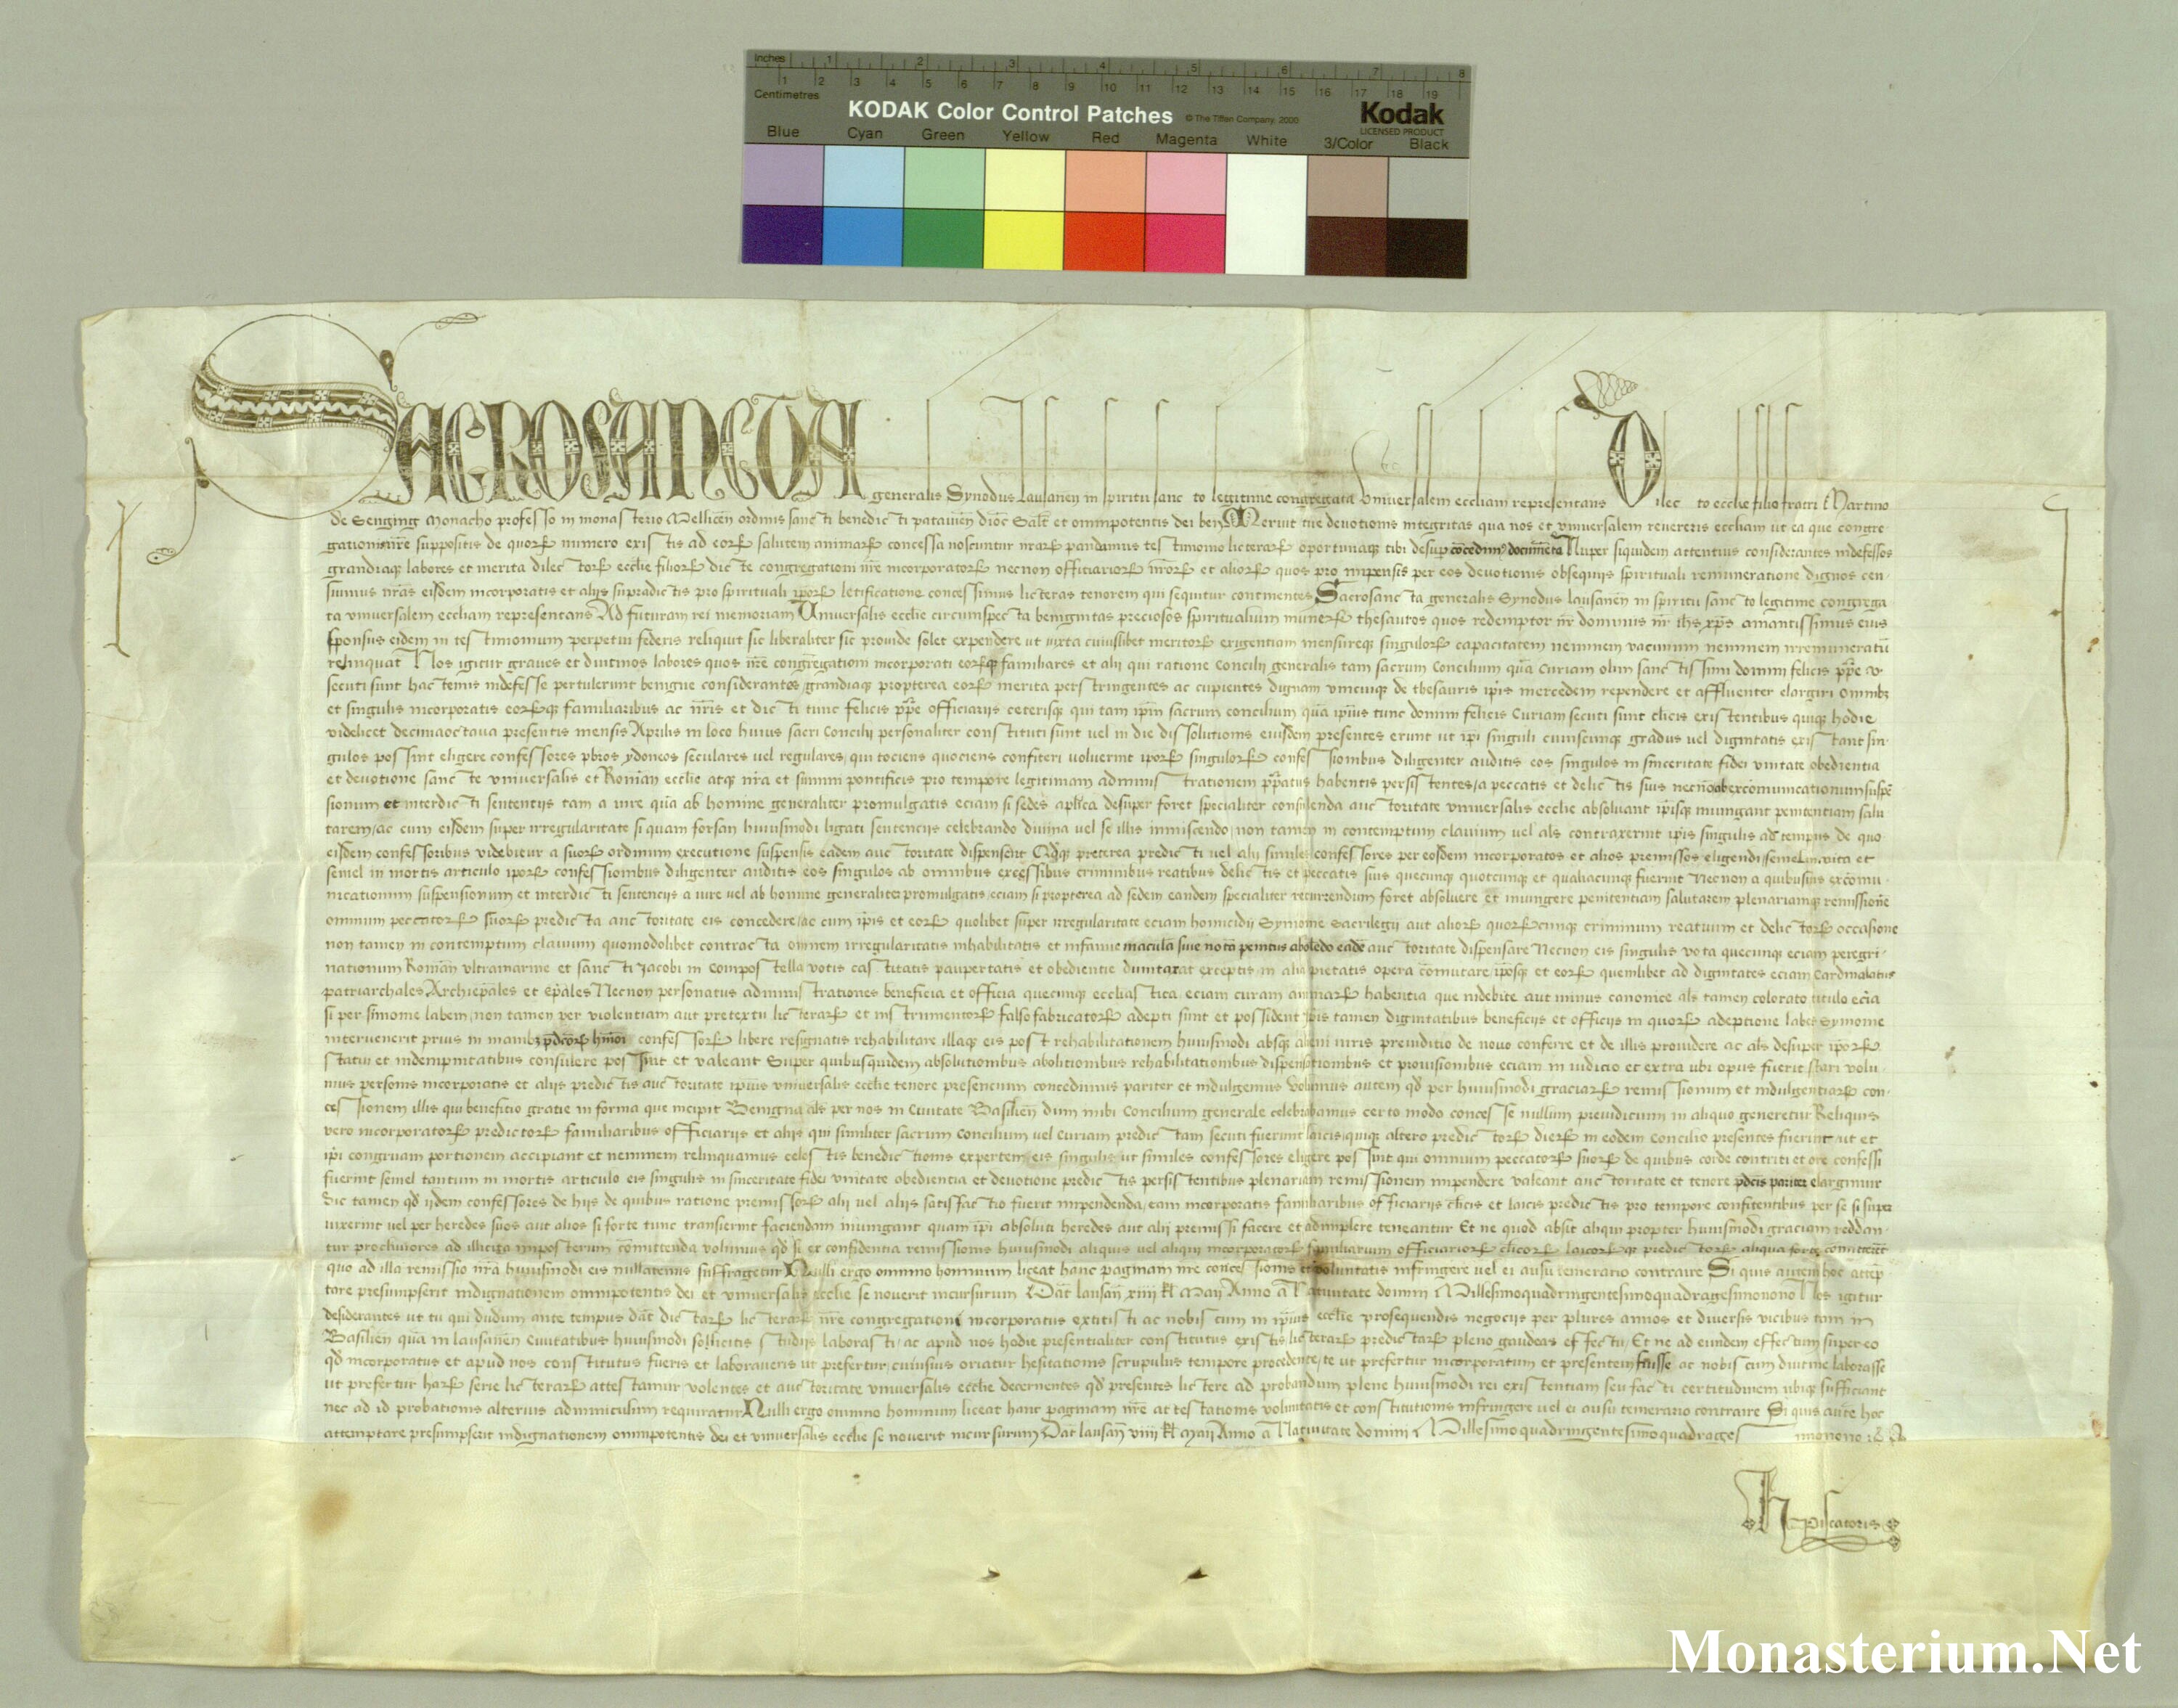 Inches 1 2 3 4 5 6 7 8
Centimetres 1 2 3 4 5 6 7 8 9 10 11 12 13 14 15 16 17 18 19
KODAK Color Control Patches © The Tiffen Company, 2000 Kodak
LICENSED PRODUCT
Blue Cyan Green Yellow Red Magenta White 3/Color Black
SACROSANCTA generalis Synodus Lausaneñ in spiritu sancto legitime congregata Universalem eccliam representans Dilecto ecclie filio fratri Martino
de Senging Monacho professo in monasterio Melliceñ ordinis sancti benedicti patavieñ dioc̄ Sal̄t et omnipotentis dei beñ Meruit tue devotionis integritas qua nos et universalem revereris eccliam ut ea que congre
gationi nr̄e suppositis de quorꝝ numero existis ad eorꝝ salutem animarꝝ concessa noscuntur nr̄arꝝ pandamus testimonio licterarꝝ oportunaqꝫ tibi desuper concedimꝰ documēta Nuper siquidem attentius considerantes indefessos
grandiaqꝫ labores et merita dilectorꝝ ecclie filiorꝝ dicte congregationi nr̄e incorporatorꝝ necnon officiariorꝝ nr̄orꝝ et aliorꝝ quos pro impensis per eos devotionis obsequijs spirituali remuneratione dignos cen
suimus nr̄as eisdem incorporatis et alijs supradictis pro spirituali ip̄orꝝ letificatione concessimus licteras tenorem qui sequitur continentes Sacrosancta generalis Synodus lausaneñ in spiritu sancto legitime congrega
ta universalem eccliam representans Ad futuram rei memoriam Universalis ecclie circumspecta benignitas preciosos spiritualium munerꝝ thesauros quos redemptor nr̄ dominus nr̄ ih̄s xp̄s amantissimus eius
sponsus eidem in testimonium perpetui federis reliquit sic liberaliter sic provide solet expendere ut iuxta cuiuslibet meritorꝝ exigentiam mensureqꝫ singulorꝝ capacitatem neminem vacuum neminem irremuneratū
relinquat Nos igitur graves et diutinos labores quos nr̄e congregationi incorporati eorꝝqꝫ familiares et alij qui ratione Concilij generalis tam sacrum Concilium qua Curiam olim sanctissimi domini felicis pp̄e v
secuti sunt hactenus indefesse pertulerunt benigne considerantes grandiaqꝫ propterea eorꝝ merita perstringentes ac cupientes dignam unicuiqꝫ de thesauris ip̄is mercedem rependere et affluenter elargiri omnibꝫ
et singulis incorporatis eorꝝqꝫ familiaribus ac nr̄is et dicti tunc felicis pp̄e officiarijs ceterisqꝫ qui tam ip̄m sacrum concilium qua ip̄ius tunc domini felicis Curiam secuti sunt cl̄icis existentibus quiqꝫ hodie
videlicet decimaoctava presentis mensis Aprilis in loco huius sacri Concilij personaliter constituti sunt vel in die dissolutionis eiusdem presentes erunt ut ip̄i singuli cuiuscunqꝫ gradus vel dignitatis existant sin
gulos possint eligere confessores pb̄ros ydoneos seculares vel regulares, qui tociens quociens confiteri voluerint ip̄orꝝ singulorꝝ confessionibus diligenter auditis eos singulos in sinceritate fidei unitate obedientia
et devotione sancte universalis et Romañ ecclie atqꝫ nr̄a et summi pontificis pro tempore legitimam administrationem pp̄atus habentis persistentes, a peccatis et delictis suis necnō ab excōmunicationum suspē
sionum et interdicti sententijs tam a iure qua ab homine generaliter promulgatis eciam si sedes aplica desuper foret specialiter consulenda auctoritate universalis ecclie absolvant ip̄isqꝫ iniungant penitentiam salu
tarem, ac cum eisdem super irregularitate si quam forsan huiusmodi ligati sentencijs celebrando divina vel se illis inmiscendo, non tamen in contemptum clavium vel als contraxerint ip̄is singulis ad tempus de quo
eisdem confessoribus videbitur a suorꝝ ordinum executione suspensis eadem auctoritate dispensent Qd̄qꝫ preterea predicti vel alij similes confessores per eosdem incorporatos et alios premissos eligendi semel in vita et
semel in mortis articulo ip̄orꝝ confessionibus diligenter auditis eos singulos ab omnibus excessibus criminibus reatibus delictis et peccatis suis quecunqꝫ quotcunqꝫ et qualiacunqꝫ fuerint Necnon a quibusvis excomu
nicationum suspensionum et interdicti sentencijs a iure vel ab homine generaliter promulgatis, eciam si propterea ad sedem eandem specialiter recurrendum foret absolvere et iniungere penitentiam salutarem plenariamqꝫ remissionē
omnium peccatorꝝ suorꝝ predicta auctoritate eis concedere, ac cum ip̄is et eorꝝ quolibet super irregularitate eciam homicidij Symonie Sacrilegij aut aliorꝝ quorꝝcunqꝫ criminum reatuum et delictorꝝ occasione
non tamen in contemptum clavium quomodolibet contracta omnem irregularitatis inhabilitatis et infamie macula sive nota penitus abolēdo eadē auctoritate dispensare Necnon eis singulis vota quecunqꝫ eciam peregri
nationum Romañ ultramarine et sancti Jacobi in Compostella votis castitatis paupertatis et obedientie dumtaxat exceptis, in alia pietatis opera cōmutare, ip̄osqꝫ et eorꝝ quemlibet ad dignitates eciam Cardinalatus
patriarchales Archiep̄ales et Ep̄ales Necnon personatus administrationes beneficia et officia quecunqꝫ eccliastica eciam curam animarꝝ habentia que indebite aut minus canonice als tamen colorato titulo eciā
si per simonie labem, non tamen per violentiam aut pretextu licterarꝝ et instrumentorꝝ falso fabricatorꝝ adepti sunt et possident ip̄is tamen dignitatibus beneficijs et officijs in quorꝝ adeptione labes Symonie
intervenerit prius in manibꝫ pdc̄orꝝ hmōi confessorꝝ libere resignatis rehabilitare illaqꝫ eis post rehabilitationem huiusmodi absqꝫ alieni iuris preiudicio de novo conferre et de illis providere ac als desuper ip̄orꝝ
statui et indempnitatibus consulere possint et valeant Super quibusquidem absolutionibus abolitionibus rehabilitationibus dispensationibus et provisionibus eciam in iudicio et extra ubi opus fuerit stari volu
mus personis incorporatis et alijs predictis auctoritate ip̄ius universalis ecclie tenore presencium concedimus pariter et indulgemus Volumus autem qd̄ per huiusmodi graciarꝝ remissionum et indulgentiarꝝ con
cessionem illis qui beneficio gratie in forma que incipit Benigna als per nos in Civitate Basilieñ dum inibi Concilium generale celebrabamus certo modo concesse nullum preiudicium in aliquo generetur Reliquis
vero incorporatorꝝ predictorꝝ familiaribus officiarijs et alijs qui similiter sacrum Concilium vel Curiam predictam secuti fuerint laicis, quiqꝫ altero predictorꝝ dierꝝ in eodem Concilio presentes fuerint, ut et
ip̄i congruam portionem accipiant et neminem relinquamus celestis benedictionis expertem, eis singulis ut similes confessores eligere possint qui omnium peccatorꝝ suorꝝ de quibus corde contriti et ore confessi
fuerint semel tantum in mortis articulo eis singulis in sinceritate fidei unitate obedientia et devotione predictis persistentibus plenariam remissionem impendere valeant auctoritate et tenore pdcis pariter elargimur
Sic tamen qd̄ ijdem confessores de hijs de quibus ratione premissorꝝ alij vel alijs satisfactio fuerit impendenda, eam incorporatis familiaribus officiarijs cl̄icis et laicis predictis pro tempore confitentibus per se si super
vixerint vel per heredes suos aut alios si forte tunc transierint faciendam iniungant quam ip̄i absoluti heredes aut alij premissi facere et adimplere teneantur Et ne quod absit aliqui propter huiusmodi graciam reddan
tur procliviores ad illicita imposterum cōmittenda volumus qd̄ si ex confidentia remissionis huiusmodi aliquis vel aliqui incorporatorꝝ familiarium officiariorꝝ cl̄icorꝝ laicorꝝqꝫ predictorꝝ aliqua forte cōmitterēt
quo ad illa remissio nr̄a huiusmodi eis nullatenus suffragetur Nulli ergo omnino hominum liceat hanc paginam nr̄e concessionis et voluntatis infringere vel ei ausu temerario contraire Si quis autem hoc attēp
tare presumpserit indignationem omnipotentis dei et universalis ecclie se noverit incursurum Dat̄ lausañ xiiij kl̄ Maij Anno a Nativitate domini Millesimoquadringentesimoquadragesimonono Nos igitur
desiderantes ut tu qui dudum ante tempus dat̄ dictarꝝ licterarꝝ nr̄e congregationi incorporatus extitisti ac nobiscum in ip̄ius ecclie prosequendis negocijs per plures annos et diversis vicibus tam in
Basilieñ qua in lausaneñ Civitatibus huiusmodi sollicitis studijs laborasti, ac apud nos hodie presentialiter constitutus existis licterarꝝ predictarꝝ pleno gaudeas effectu, Et ne ad eundem effectum super eo
qd̄ incorporatus et apud nos constitutus fueris et laboraveris ut prefertur, cuiusvis oriatur hesitationis scrupulus tempore procedente, te ut prefertur incorporatum et presentem fuisse ac nobiscum diutine laborasse
ut prefertur harꝝ serie licterarꝝ attestamur, volentes et auctoritate universalis ecclie decernentes qd̄ presentes lictere ad probandum plene huiusmodi rei existentiam seu facti certitudinem ubiqꝫ sufficiant
nec ad id probationis alterius adminiculum requiratur Nulli ergo omnino hominum liceat hanc paginam nr̄e attestationis voluntatis et constitutionis infringere vel ei ausu temerario contraire Si quis autē hoc
attemptare presumpserit indignationem omnipotentis dei et universalis ecclie se noverit incursurum Dat̄ lausañ viiij kl̄ Maij Anno a Nativitate domini Millesimoquadringentesimoquadragesimonono
piscatoris
Monasterium.Net